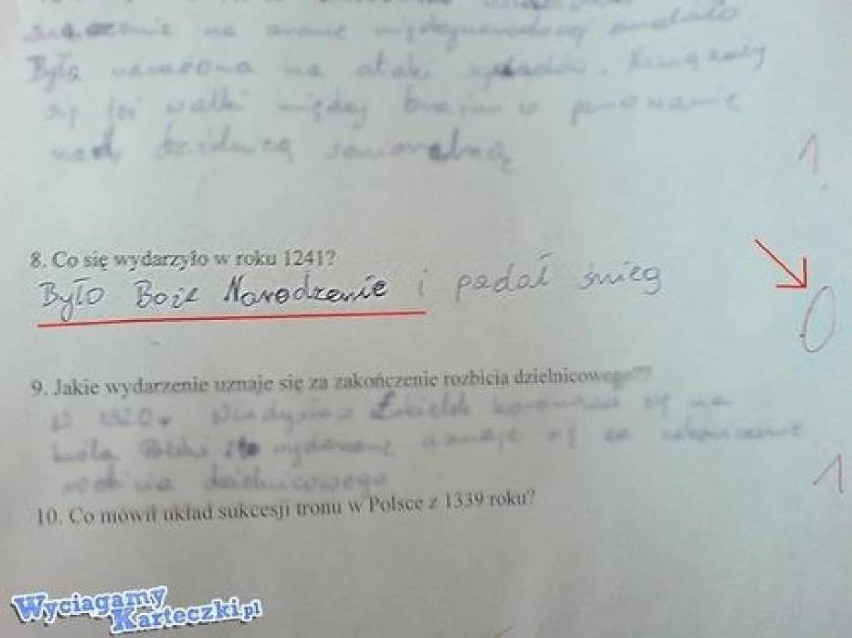 na arenie międzynarodowej
Była narażona na ataki sąsiadów.
się też walki między braćmi o panowanie
nad dzielnicą senioralną
1.
8. Co się wydarzyło w roku 1241?
Było Boże Narodzenie i padał śnieg
0
9. Jakie wydarzenie uznaje się za zakończenie rozbicia dzielnicowego??
W 1320 r Władysław Łokietek koronował się na
króla Polski i to wydarzenie uznaje się za zakończenie
rozbicia dzielnicowego
1
10. Co mówił układ sukcesji tronu w Polsce z 1339 roku?
Wyciagamy
Karteczki.pl